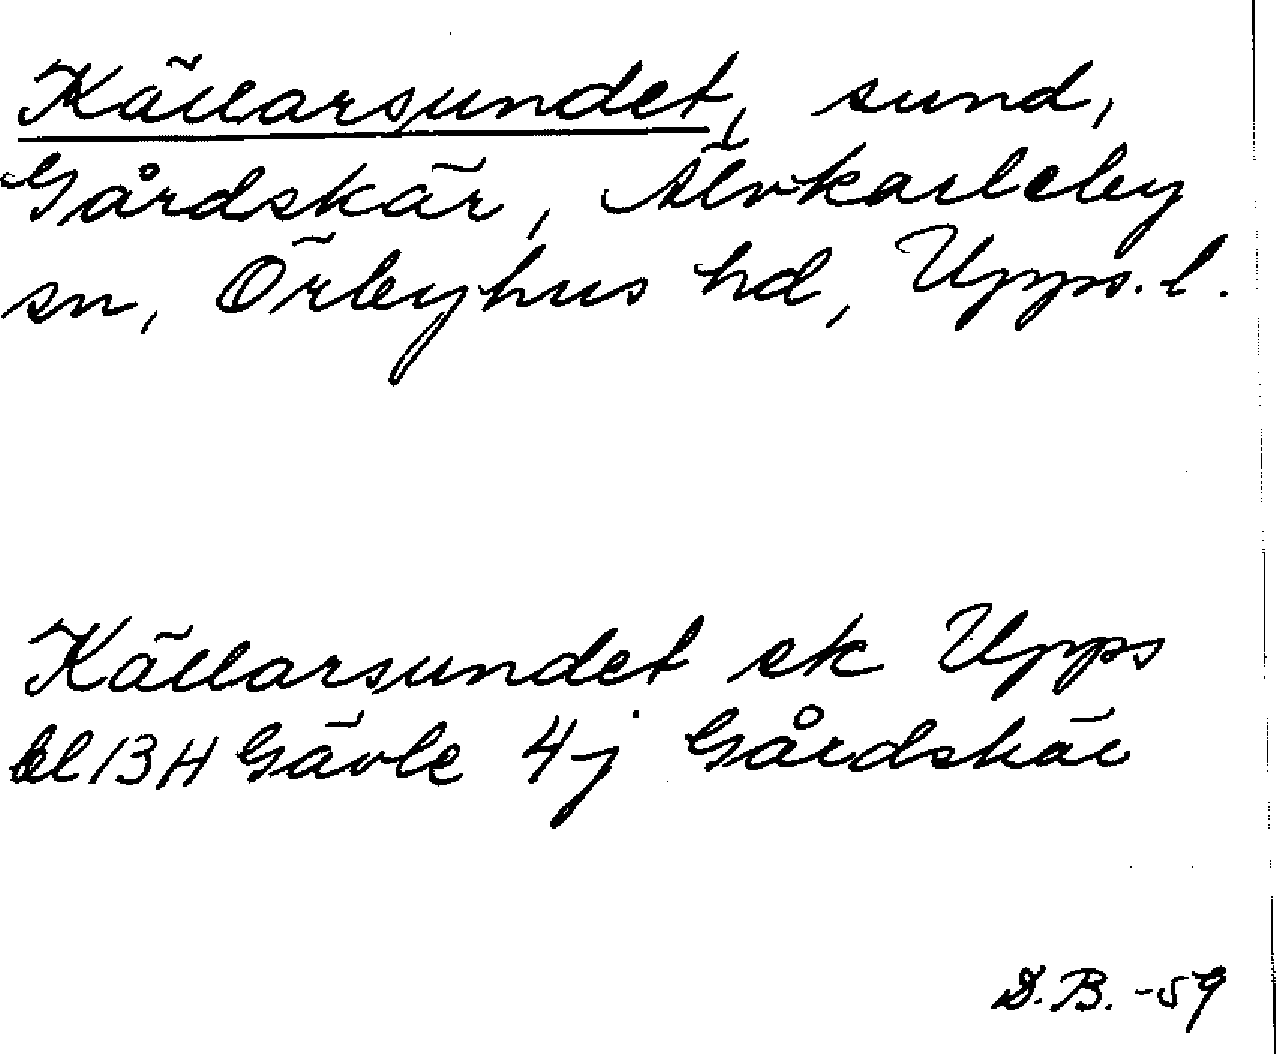 Källarsundet, sund,
Gårdskär, Älvkarleby
sn, Örbyhus hd, Upps. l.
Källarsundet ek Upps
bl 13H Gävle 4j Gårdskär
D.B. -59